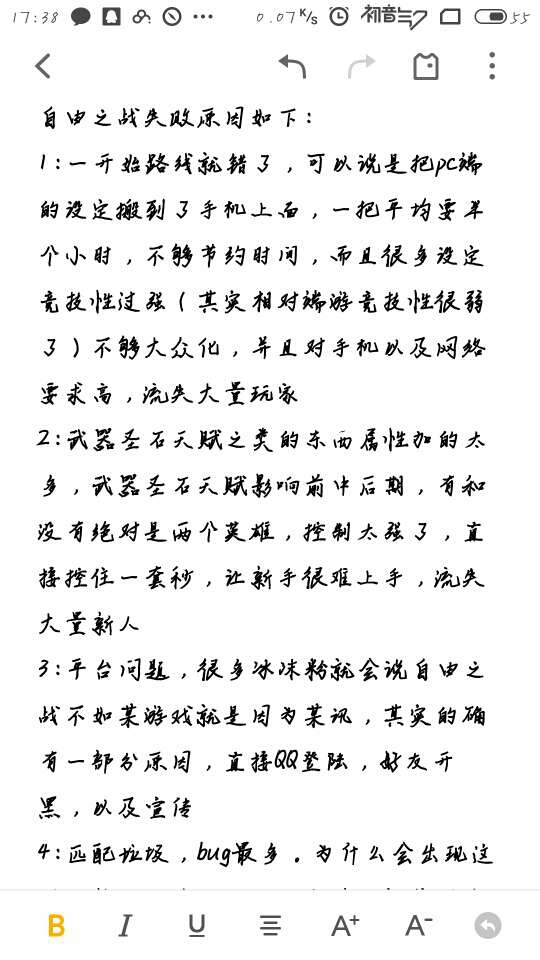 17:38
0.07K/s
初音
55
自由之战失败原因如下：
1:一开始路线就错了，可以说是把pc端
的设定搬到了手机上面，一把平均要半
个小时，不够节约时间，而且很多设定
竞技性过强（其实相对端游竞技性很弱
了）不够大众化，并且对手机以及网络
要求高，流失大量玩家
2:武器圣石天赋之类的东西属性加的太
多，武器圣石天赋影响前中后期，有和
没有绝对是两个英雄，控制太强了，直
接控住一套秒，让新手很难上手，流失
大量新人
3:平台问题，很多冰沫粉就会说自由之
战不如某游戏就是因为某讯，其实的确
有一部分原因，直接QQ登陆，好友开
黑，以及宣传
4:匹配垃圾，bug最多。为什么会出现这
B I U A+ A-